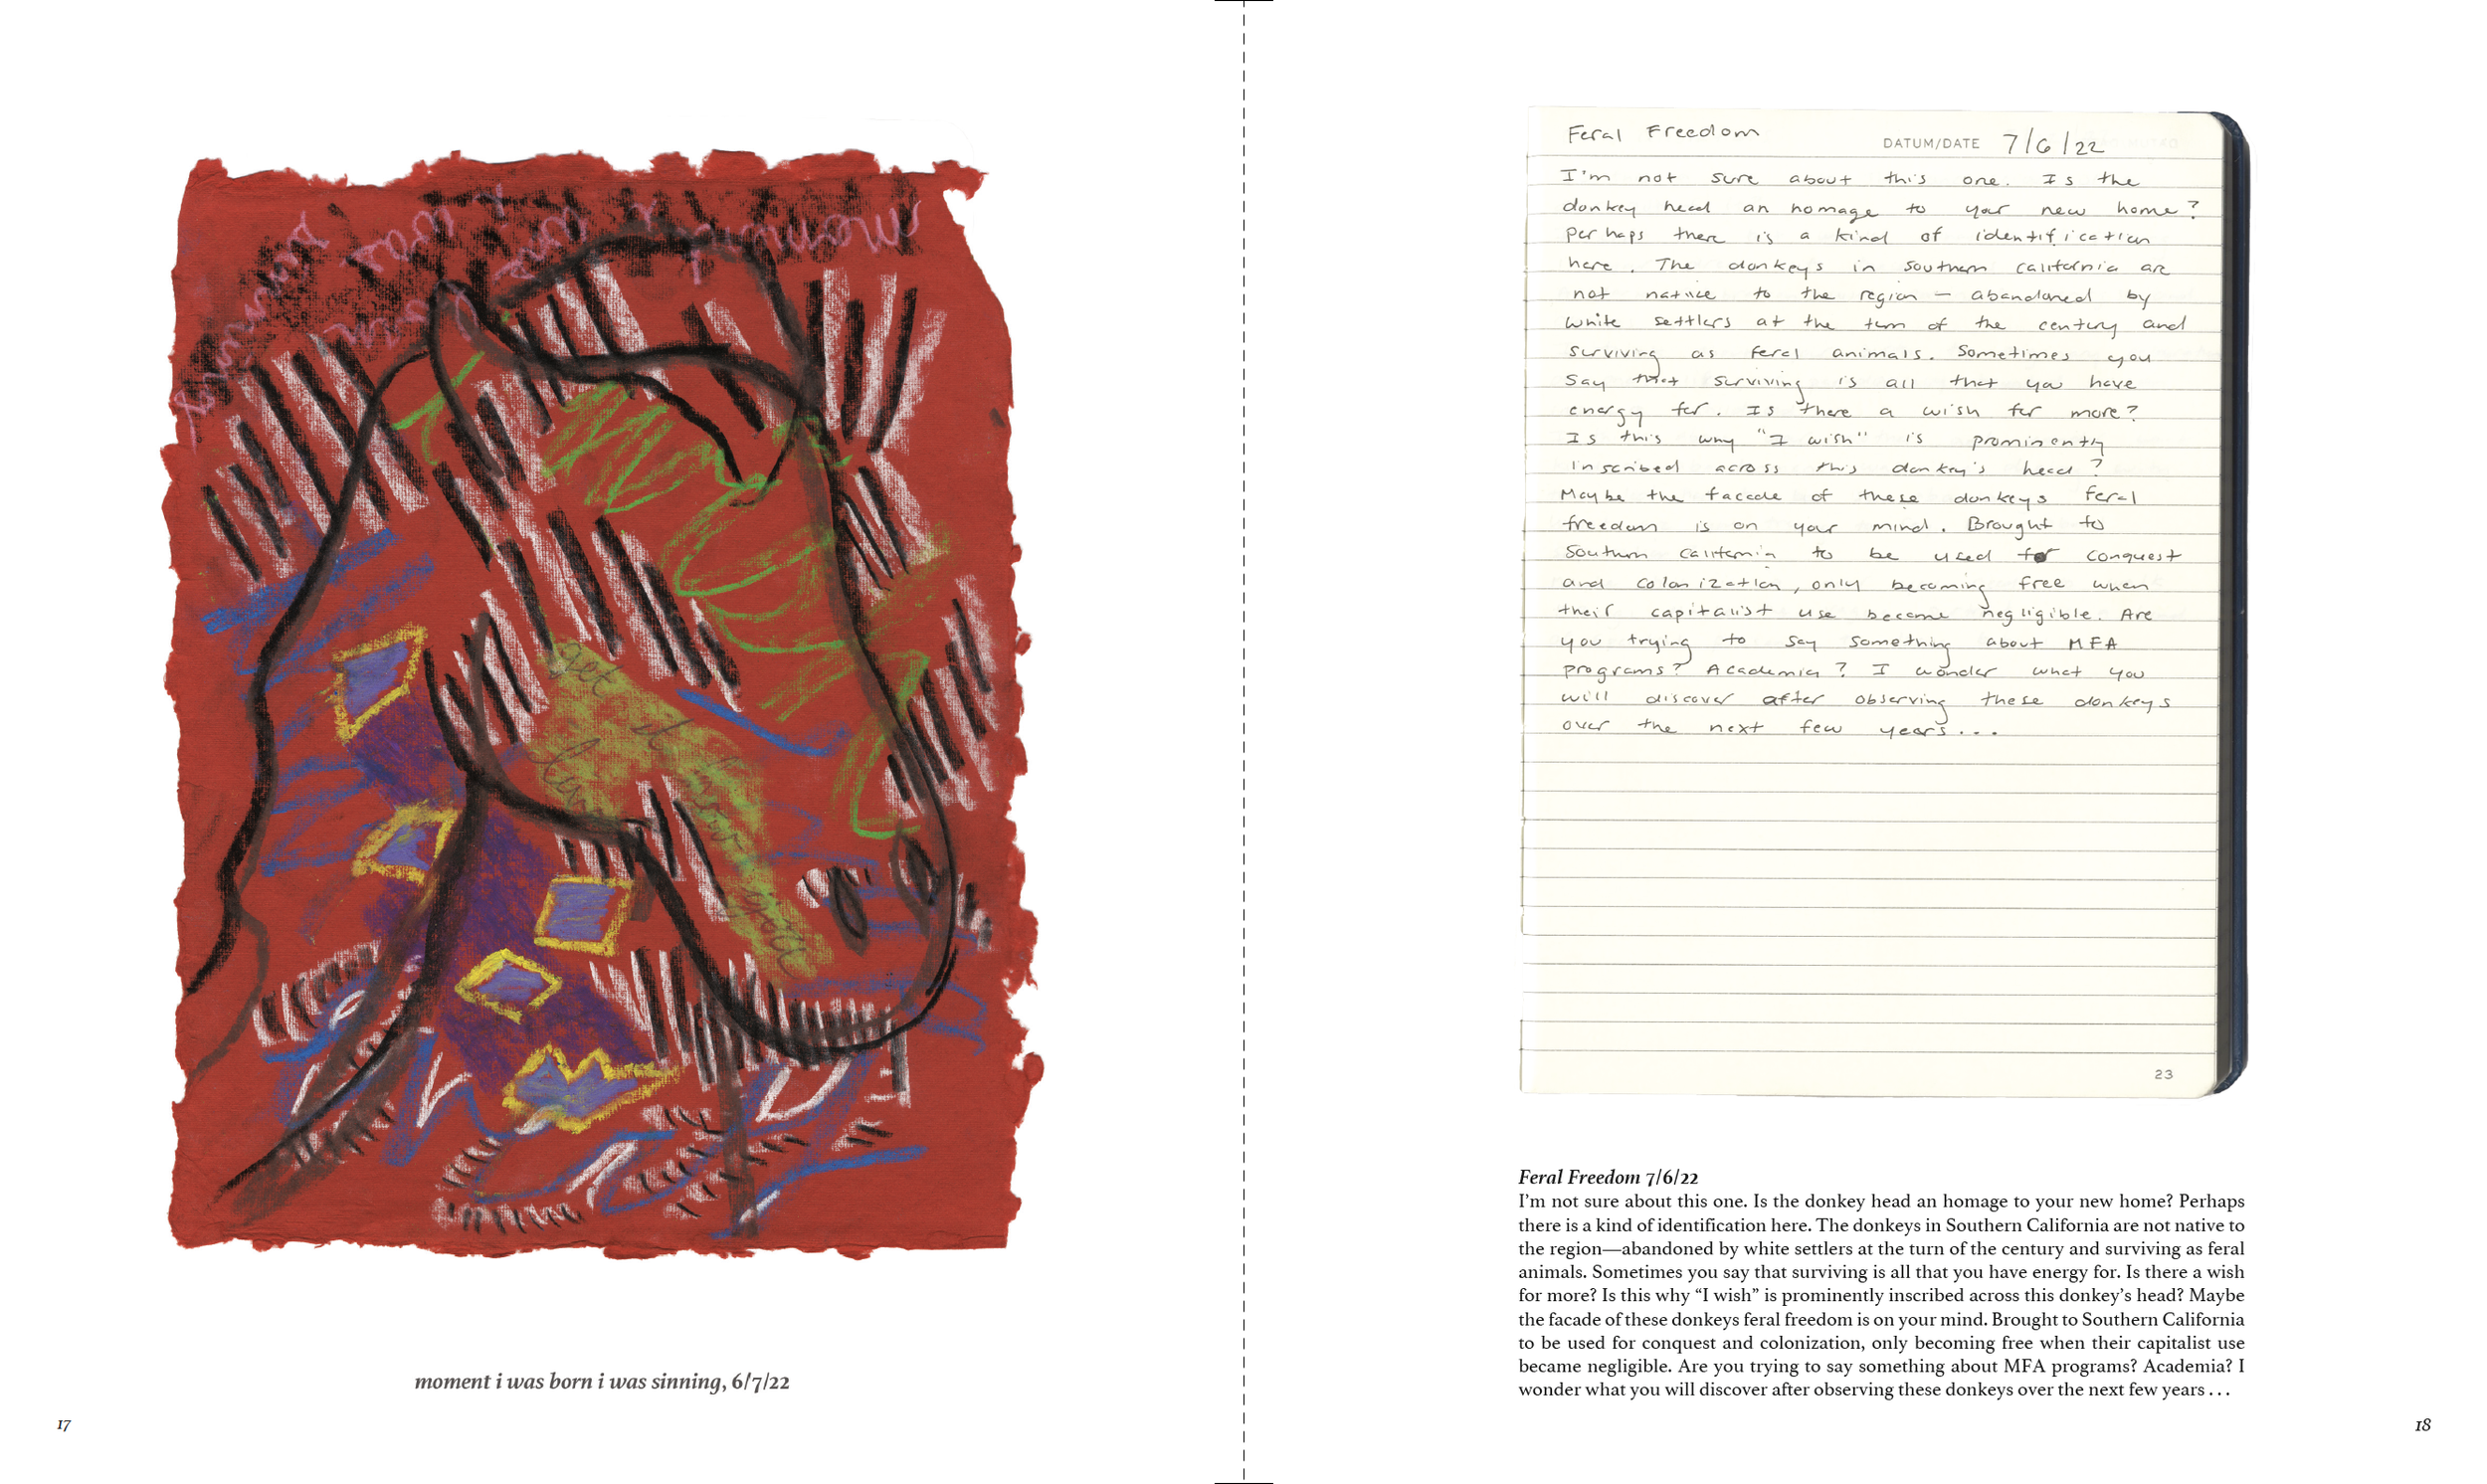 moment i was born i was sinning
get it
how
moment i was born i was sinning, 6/7/22
17
Feral Freedom
DATUM/DATE 7/6/22
I'm not sure about this one. Is the
donkey head an homage to your new home?
Perhaps there is a kind of identification
here. The donkeys in southern california are
not native to the region — abandoned by
white settlers at the turn of the century and
surviving as feral animals. Sometimes you
say that surviving is all that you have
energy for. Is there a wish for more?
Is this why "I wish" is prominently
inscribed across this donkey's head?
Maybe the facade of these donkeys feral
freedom is on your mind. Brought to
Southern California to be used for conquest
and colonization, only becoming free when
their capitalist use became negligible. Are
you trying to say something about MFA
programs? Academia? I wonder what you
will discover after observing these donkeys
over the next few years...
23
Feral Freedom 7/6/22
I’m not sure about this one. Is the donkey head an homage to your new home? Perhaps
there is a kind of identification here. The donkeys in Southern California are not native to
the region—abandoned by white settlers at the turn of the century and surviving as feral
animals. Sometimes you say that surviving is all that you have energy for. Is there a wish
for more? Is this why “I wish” is prominently inscribed across this donkey’s head? Maybe
the facade of these donkeys feral freedom is on your mind. Brought to Southern California
to be used for conquest and colonization, only becoming free when their capitalist use
became negligible. Are you trying to say something about MFA programs? Academia? I
wonder what you will discover after observing these donkeys over the next few years . . .
18